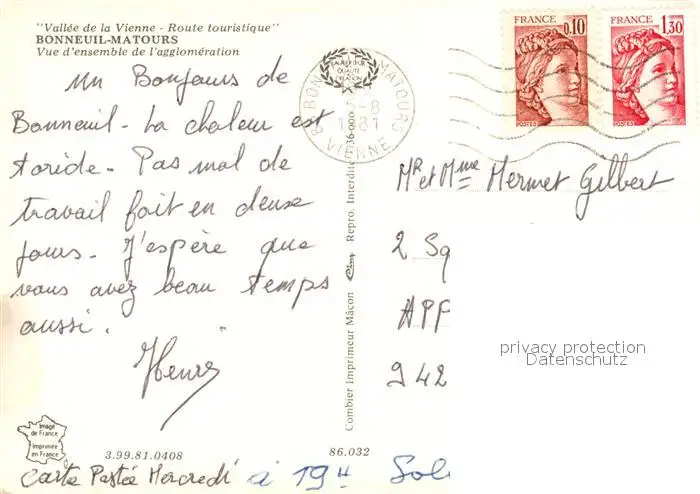 "Vallée de la Vienne - Route touristique"
BONNEUIL-MATOURS
Vue d'ensemble de l'agglomération
Un Bonjours de
Bonneuil - La chaleur est
toride - Pas mal de
travail fait en deuse
jours - J'espère que
vous avez beau temps
aussi.
Henri
Image
de France
Imprimée
en France
3.99.81.0408
86.032
Carte Postée Mercredi à 19H Sol
Combier Imprimeur Mâcon Cim Repro. Interdite
FRANCE 0,10
POSTES
FRANCE 1,30
POSTES
MATOURS
1981
VIENNE
Mr et Mme Mermet Gilbert
2 Sq
APP
942
privacy protection
Datenschutz